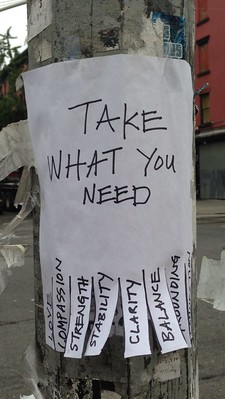 TAKE
WHAT YOU
NEED
LOVE
COMPASSION
STRENGTH
STABILITY
CLARITY
BALANCE
GROUNDING